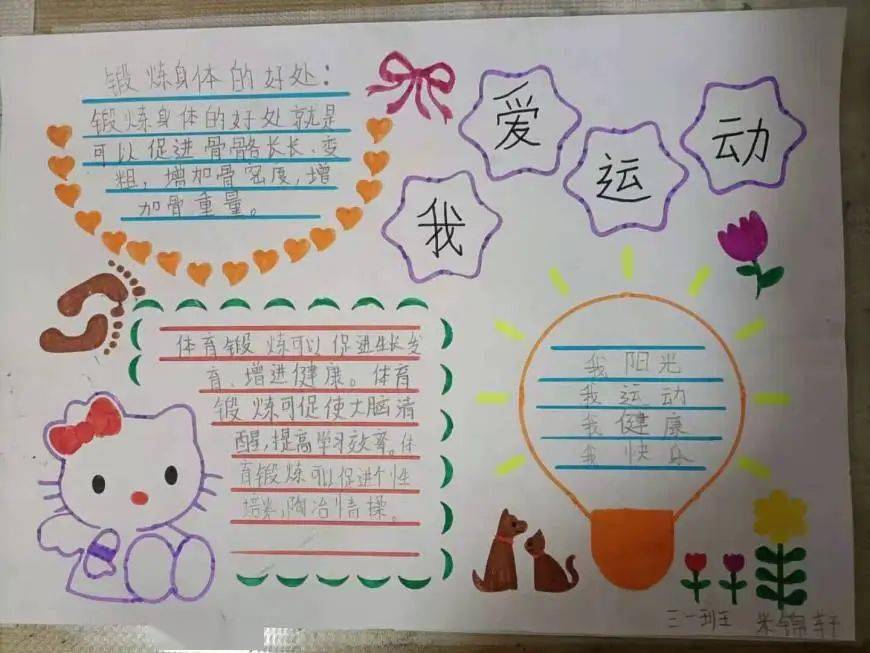 我爱运动
锻炼身体的好处：
锻炼身体的好处就是
可以促进骨骼长长、变
粗，增加骨密度，增
加骨重量。
体育锻炼可以促进生长发
育、增进健康。体育
锻炼可促使大脑清
醒，提高学习效率。体
育锻炼可以促进个性
培养，陶冶情操。
我阳光
我运动
我健康
我快乐
三一班 朱锦轩